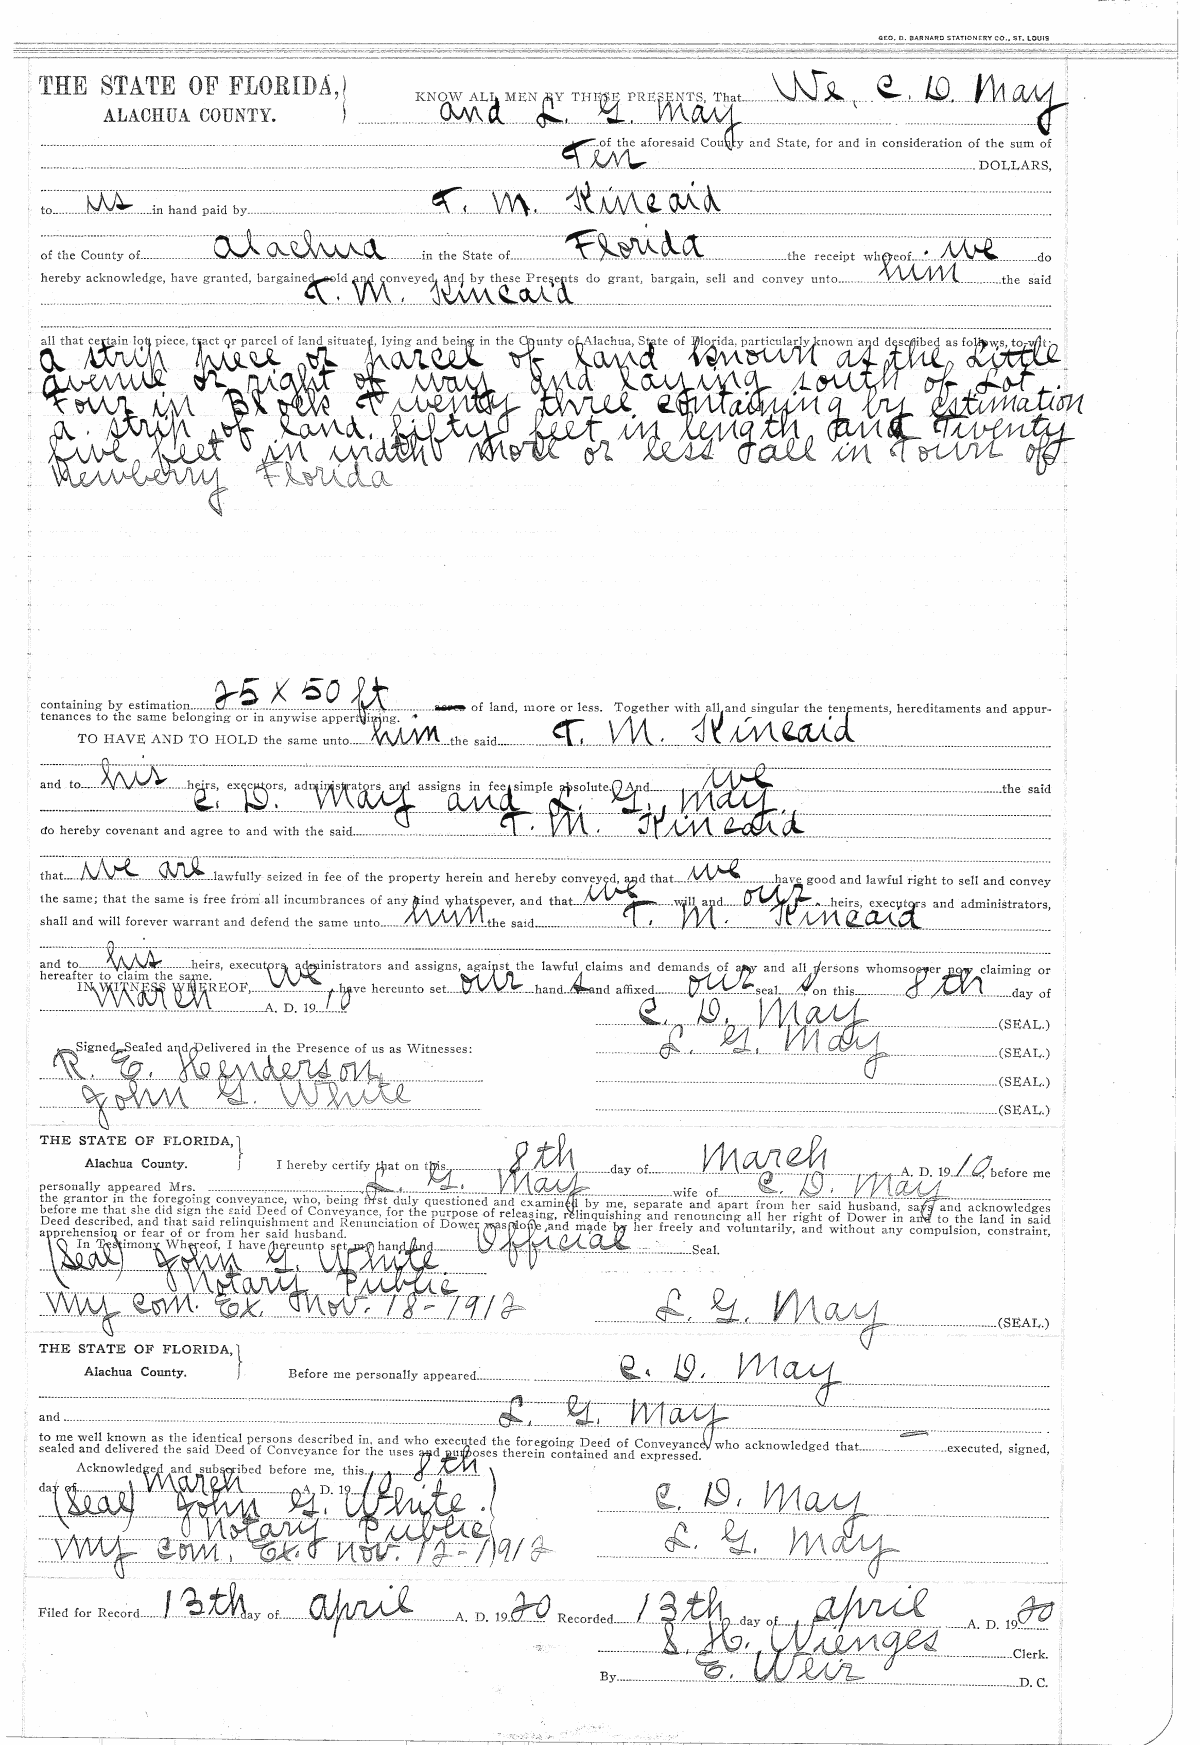 GEO. D. BARNARD STATIONERY CO., ST. LOUIS
THE STATE OF FLORIDA, KNOW ALL MEN BY THESE PRESENTS, That We, C. D. May
ALACHUA COUNTY. and L. G. May
of the aforesaid County and State, for and in consideration of the sum of
Ten DOLLARS,
to us in hand paid by T. M. Kincaid
of the County of Alachua in the State of Florida the receipt whereof we do
hereby acknowledge, have granted, bargained, sold and conveyed, and by these Presents do grant, bargain, sell and convey unto him the said
T. M. Kincaid
all that certain lot, piece, tract or parcel of land situated, lying and being in the County of Alachua, State of Florida, particularly known and described as follows, to-wit:
a strip piece or parcel of land known as the Little
avenue or right of way and laying south of Lot
Four in Block Twenty three containing by estimation
a strip of land fifty feet in length and Twenty
five feet in width more or less all in Town of
Newberry Florida
containing by estimation 25 X 50 ft acres of land, more or less. Together with all and singular the tenements, hereditaments and appur-
tenances to the same belonging or in anywise appertaining.
TO HAVE AND TO HOLD the same unto him the said T. M. Kincaid
and to his heirs, executors, administrators and assigns in fee simple absolute. And we the said
C. D. May and L. G. May
do hereby covenant and agree to and with the said T. M. Kincaid
that we are lawfully seized in fee of the property herein and hereby conveyed, and that we have good and lawful right to sell and convey
the same; that the same is free from all incumbrances of any kind whatsoever, and that we will and our heirs, executors and administrators,
shall and will forever warrant and defend the same unto him the said T. M. Kincaid
and to his heirs, executors, administrators and assigns, against the lawful claims and demands of any and all persons whomsoever now claiming or
hereafter to claim the same.
IN WITNESS WHEREOF, we have hereunto set our hand s and affixed our seal s on this 8th day of
March A. D. 1910
C. D. May (SEAL.)
L. G. May (SEAL.)
Signed, Sealed and Delivered in the Presence of us as Witnesses:
R. E. Henderson (SEAL.)
John G. White (SEAL.)
THE STATE OF FLORIDA,
Alachua County. I hereby certify that on this 8th day of March A. D. 1910, before me
personally appeared Mrs. L. G. May wife of C. D. May
the grantor in the foregoing conveyance, who, being first duly questioned and examined by me, separate and apart from her said husband, says and acknowledges
before me that she did sign the said Deed of Conveyance, for the purpose of releasing, relinquishing and renouncing all her right of Dower in and to the land in said
Deed described, and that said relinquishment and Renunciation of Dower was done and made by her freely and voluntarily, and without any compulsion, constraint,
apprehension or fear of or from her said husband.
In Testimony Whereof, I have hereunto set my hand and Official Seal.
(Seal) John G. White
Notary Public
My Com. Ex. Nov. 18-1912 L. G. May (SEAL.)
THE STATE OF FLORIDA,
Alachua County. Before me personally appeared C. D. May
and L. G. May
to me well known as the identical persons described in, and who executed the foregoing Deed of Conveyance, who acknowledged that executed, signed,
sealed and delivered the said Deed of Conveyance for the uses and purposes therein contained and expressed.
Acknowledged and subscribed before me, this 8th
day of March A. D. 1910
(Seal) John G. White C. D. May
Notary Public
My Com. Ex. Nov. 12-1912 L. G. May
Filed for Record 13th day of April A. D. 1920 Recorded 13th day of April A. D. 1920
S. H. Wienges Clerk.
By E. Weir D. C.